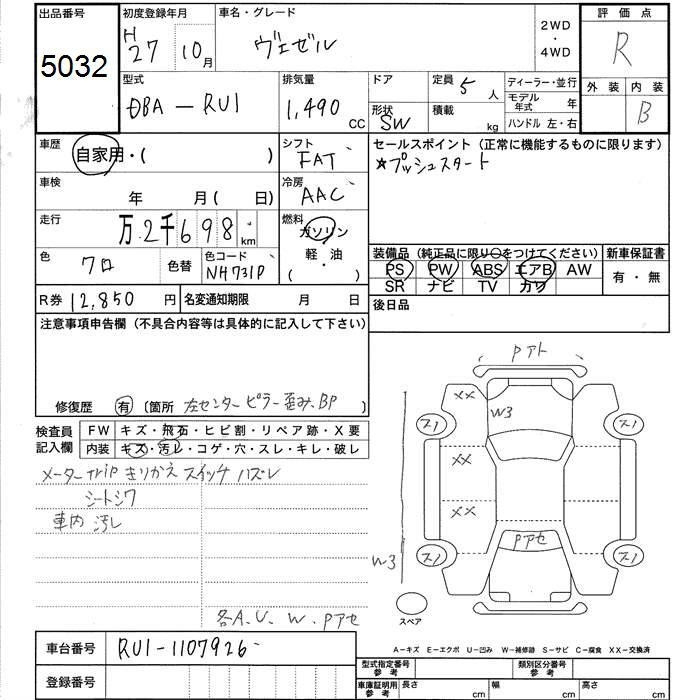 出品番号 初度登録年月 車名・グレード 2WD ・ 4WD 評価点
5032 H 27 10月 ヴェゼル R
型式 排気量 ドア 定員 5 人 ディーラー・並行 外装 内装
DBA-RU1 1,490 CC 形状 SW 積載 kg モデル年式 年 B
ハンドル 左・右
車歴 自家用・( ) シフト FAT セールスポイント(正常に機能するものに限ります)
★プッシュスタート
車検 年 月( 日) 冷房 AAC
走行 万2千698 km 燃料 ガソリン 軽・油 ( ・ )
色 クロ 色替 色コード NH731P
装備品(純正品に限り○をつけてください) 新車保証書
PS PW ABS エアB AW 有・無
SR ナビ TV カワ
R券 12,850 円 名変通知期限 月 日 後日品
注意事項申告欄(不具合内容等は具体的に記入して下さい)
修復歴 有 〔箇所 左センターピラー歪み、BP 〕
検査員記入欄 FW キズ・飛石・ヒビ割・リペア跡・X要
内装 キズ・汚レ・コゲ・穴・スレ・キレ・破レ
メーターtripきりかえスイッチハズレ
シートシワ
車内汚レ
各A.U.W.Pアセ
Pアト
XX W3
ス1 ス1
XX
XX
Pアセ
W3 ス1 ス1
スペア
A-キズ E-エクボ U-凹み W-補修跡 S-サビ C-腐食 XX-交換済
車台番号 RU1-1107926
登録番号
型式指定番号 参考 類別区分番号 参考
車庫証明用 参考 長さ cm 幅 cm 高さ cm